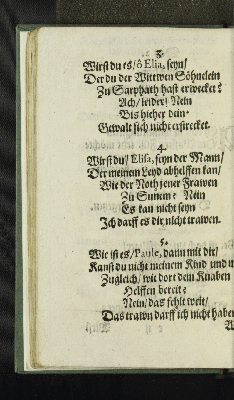 3.
Wirst du es/ ô Elia, seyn/
Der du der Wittwen Söhnlein
Zu Sarphath hast erwecket?
Ach/ leider/ Nein
Bis hieher dein
Gewalt sich nicht erstrecket.
4.
Wirst du/ Elisa, seyn der Mann/
Der meinem Leyd abhelffen kan/
Wie der Noth jener Frawen
Zu Sunem? Nein
Es kan nicht seyn
Ich darff es dir nicht trawen.
5.
Wie ist es/ Paule, dann mit dir/
Kanst du nicht meinem Kind und m
Zugleich/ wie dort dem Knaben
Helffen bereit?
Nein/ das fehlt weit/
Das trawn darff ich nicht haben